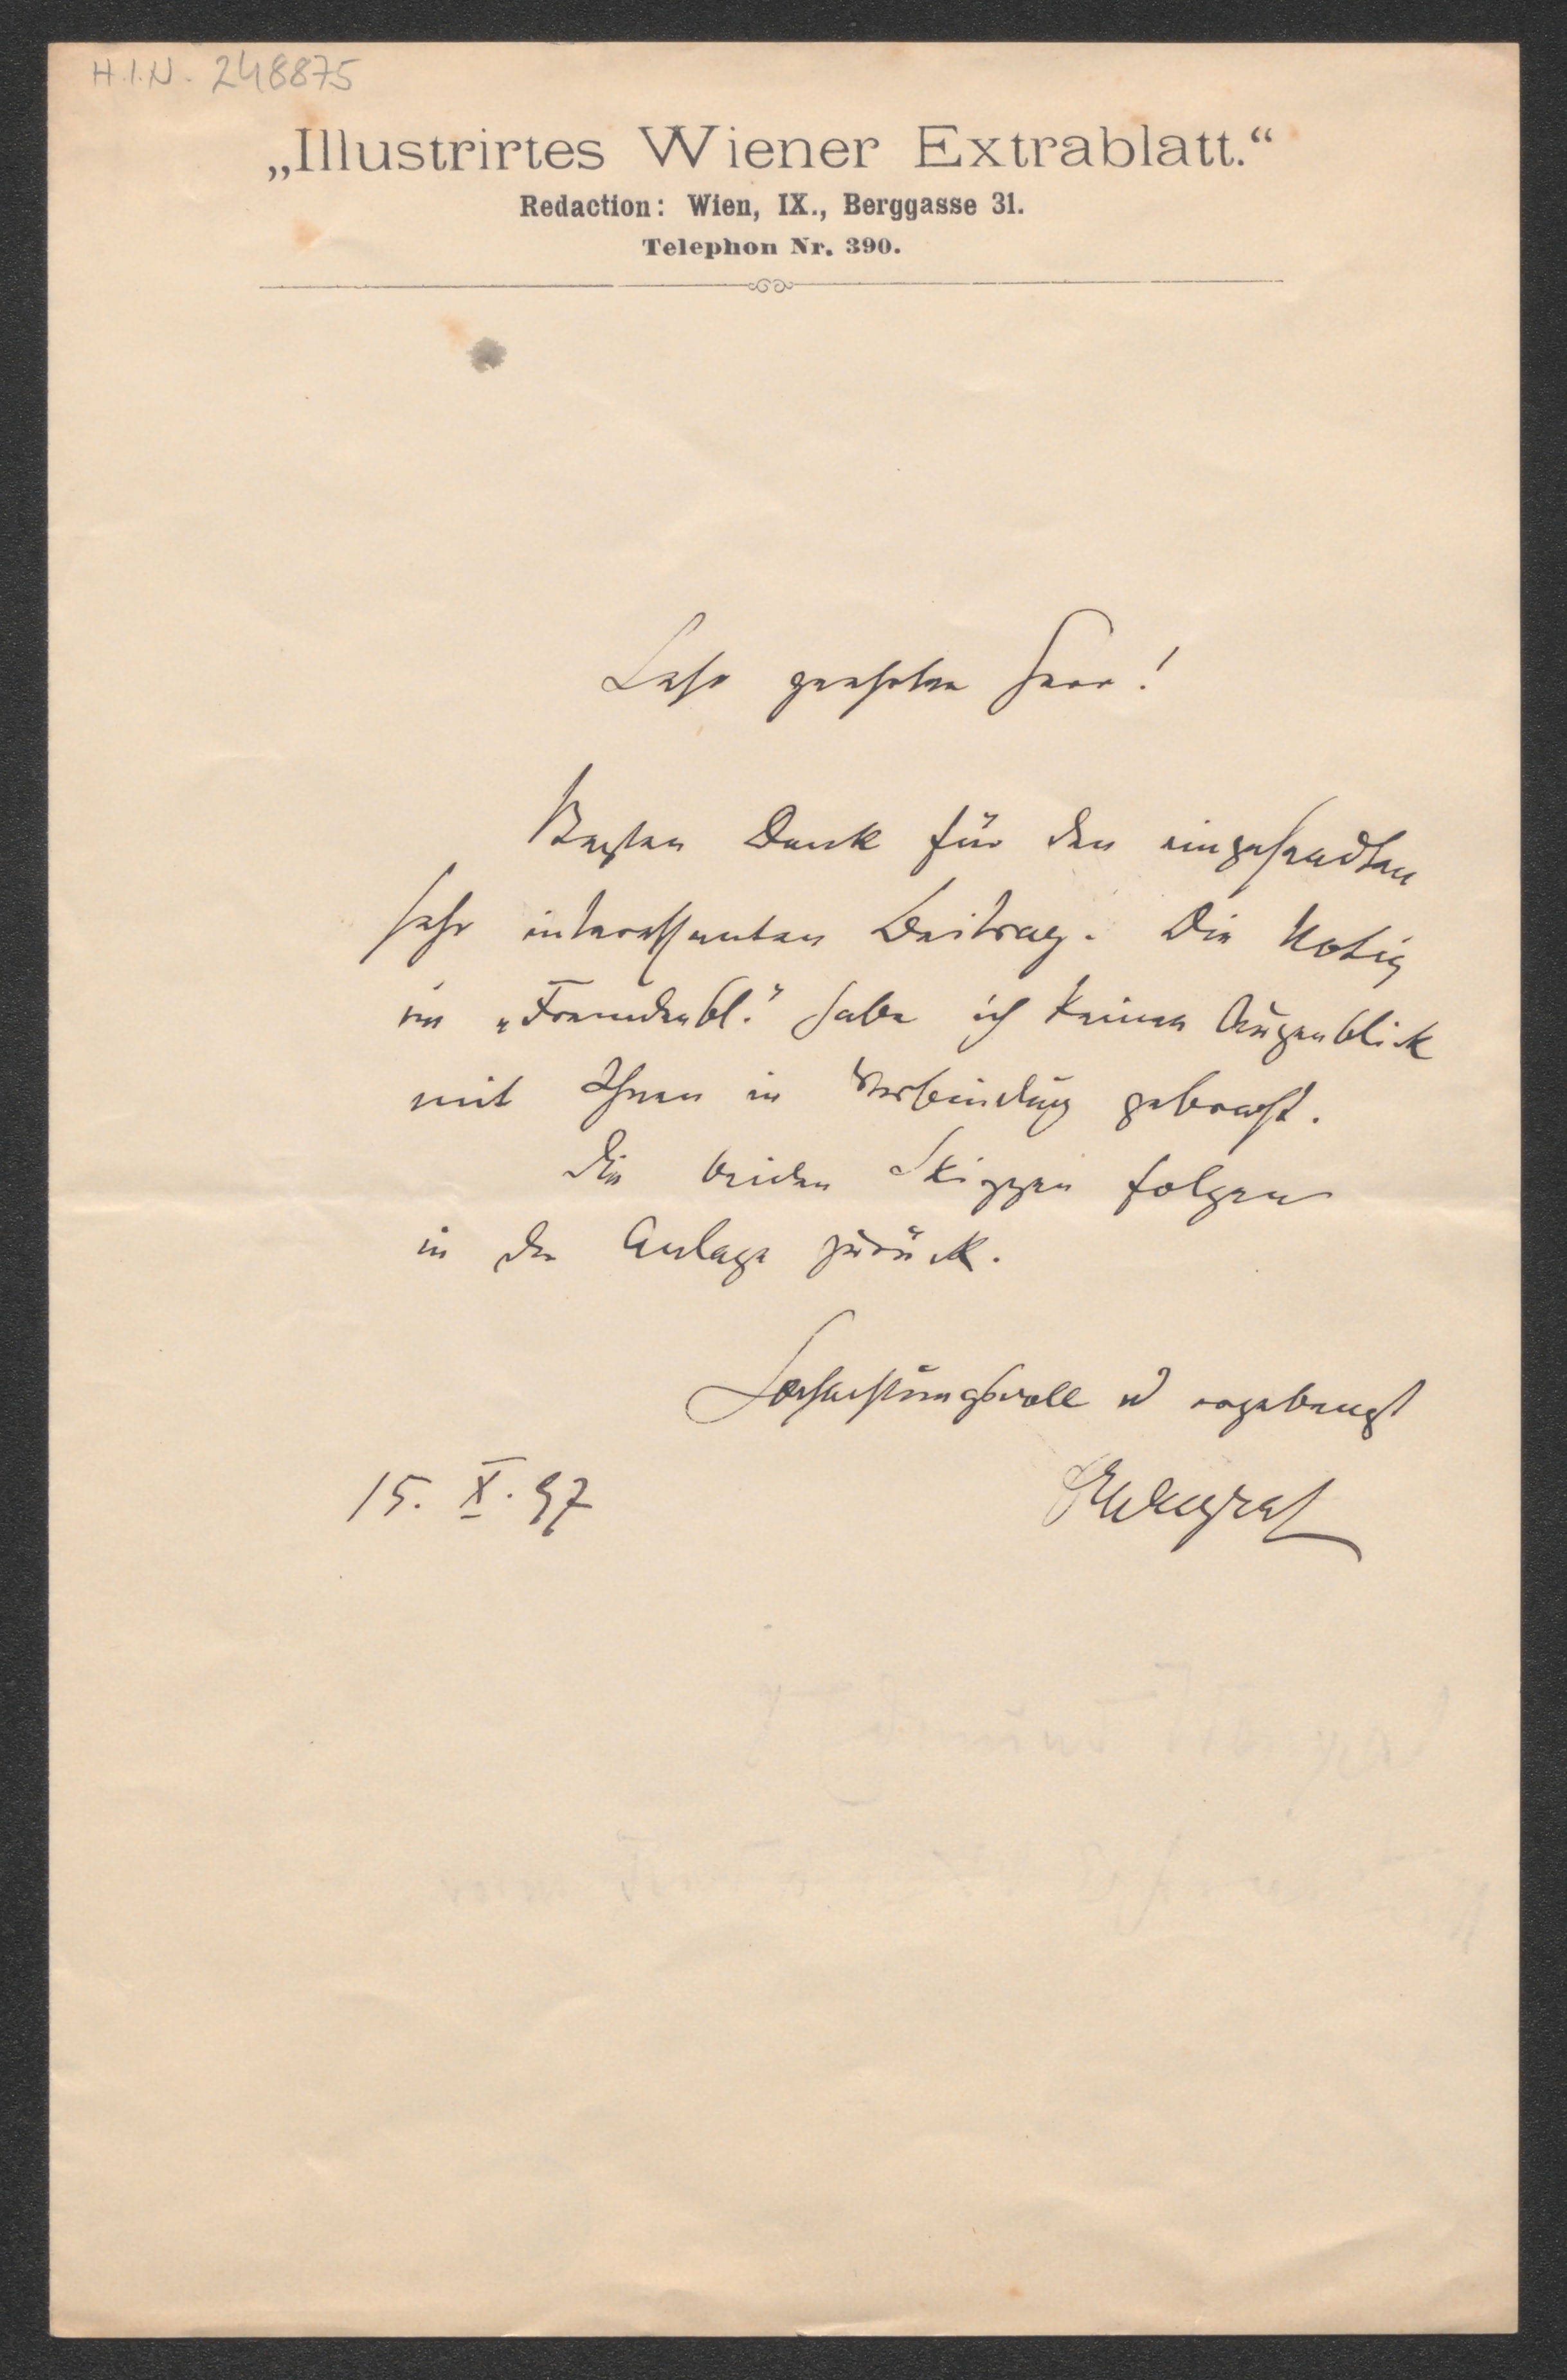 H.I.N. 248875
„Illustrirtes Wiener Extrablatt.“
Redaction: Wien, IX., Berggasse 31.
Telephon Nr. 390.
Sehr geehrter Herr!
Besten Dank für den eingesandten
sehr interessanten Beitrag. Die Notiz
im „Fremdenbl.“ habe ich keinen Augenblick
mit Ihnen in Verbindung gebracht.
Die beiden Skizzen folgen
in der Anlage zurück.
Hochachtungsvoll u ergebenst
15. X. 97